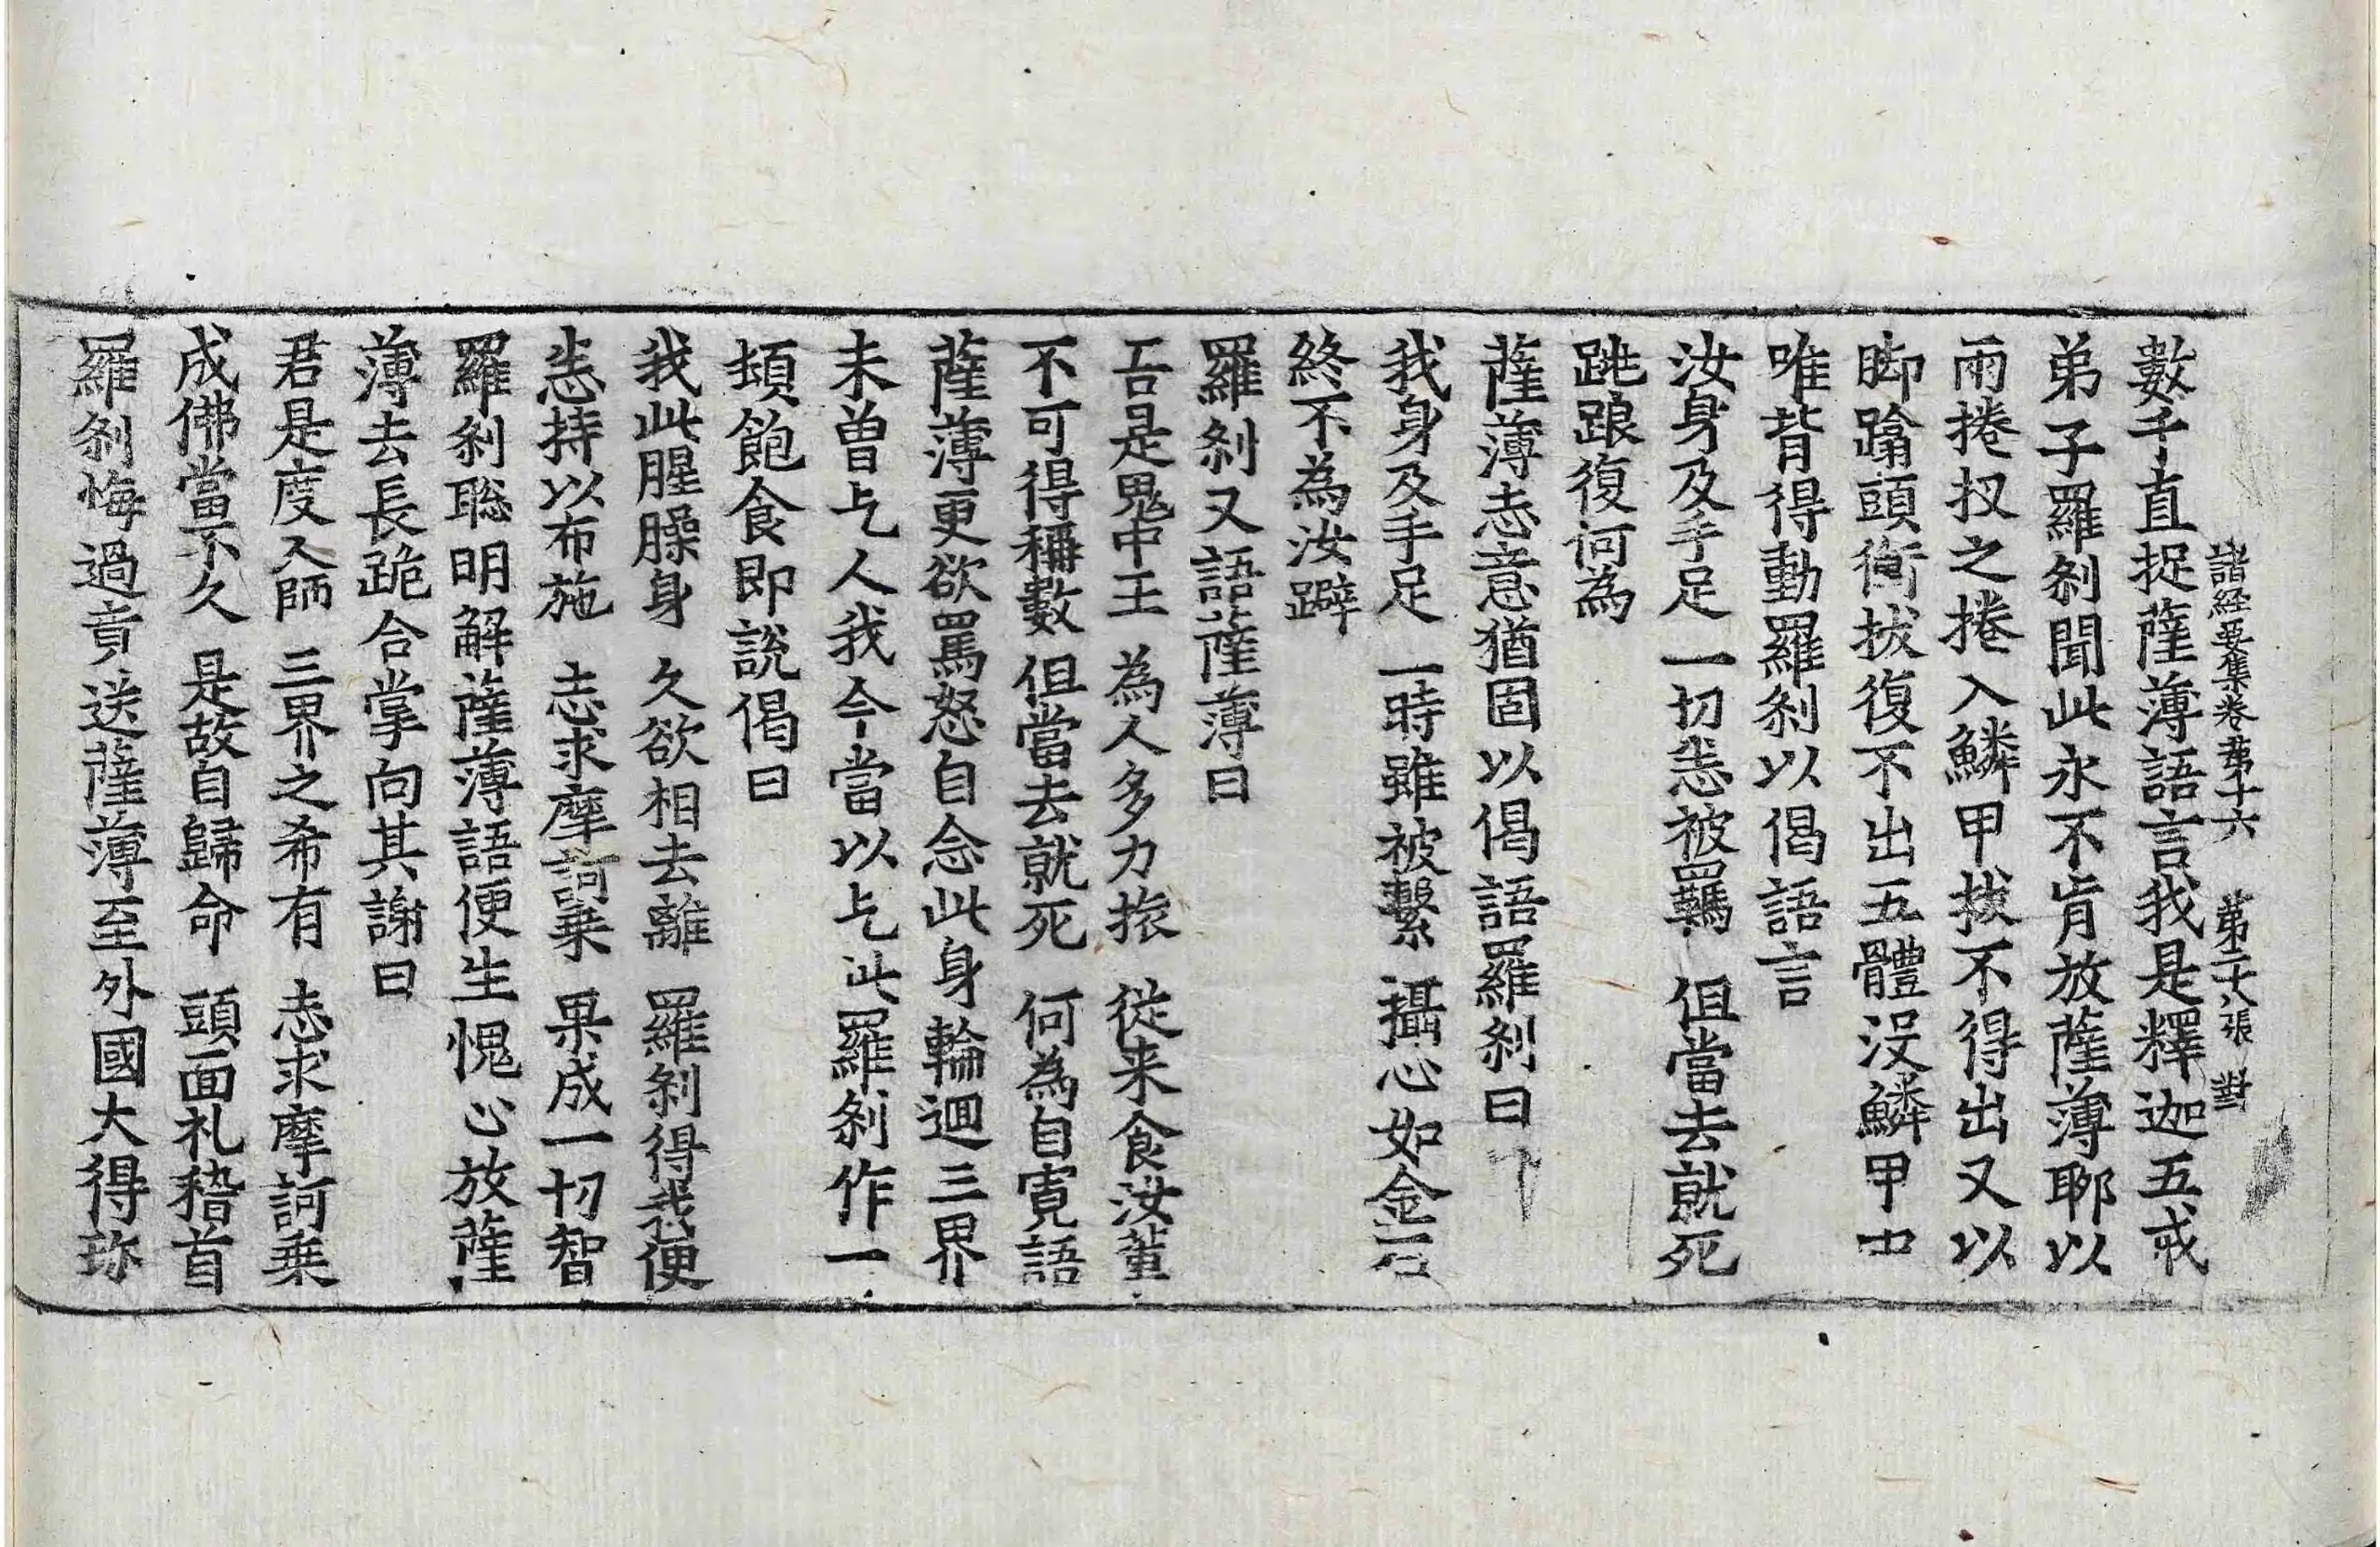 諸経要集卷苐十六 苐二十八張 對
數千直捉薩薄語言我是釋迦五戒
弟子羅刹聞此永不肯放薩薄耶以
兩捲扠之捲入鱗甲拔不得出又以
脚蹹頭衝拔復不出五體没鱗甲中
唯背得動羅刹以偈語言
汝身及手足 一切悉被羈 但當去就死
跳踉復何為
薩薄志意猶固以偈語羅刹曰
我身及手足 一時雖被繫 攝心如金石
終不為汝躃
羅刹又語薩薄曰
吾是鬼中王 為人多力旅 従来食汝輩
不可得稱數 但當去就死 何為自寛語
薩薄更欲罵怒自念此身輪迴三界
未曽乞人我今當以乞此羅刹作一
頓飽食即說偈曰
我此腥臊身 久欲相去離 羅刹得我便
悉持以布施 志求摩訶乗 果成一切智
羅刹聡明解薩薄語便生愧心放薩
薄去長跪合掌向其謝曰
君是度人師 三界之希有 志求摩訶乗
成佛當不久 是故自歸命 頭面礼稽首
羅刹悔過責送薩薄至外國大得珎